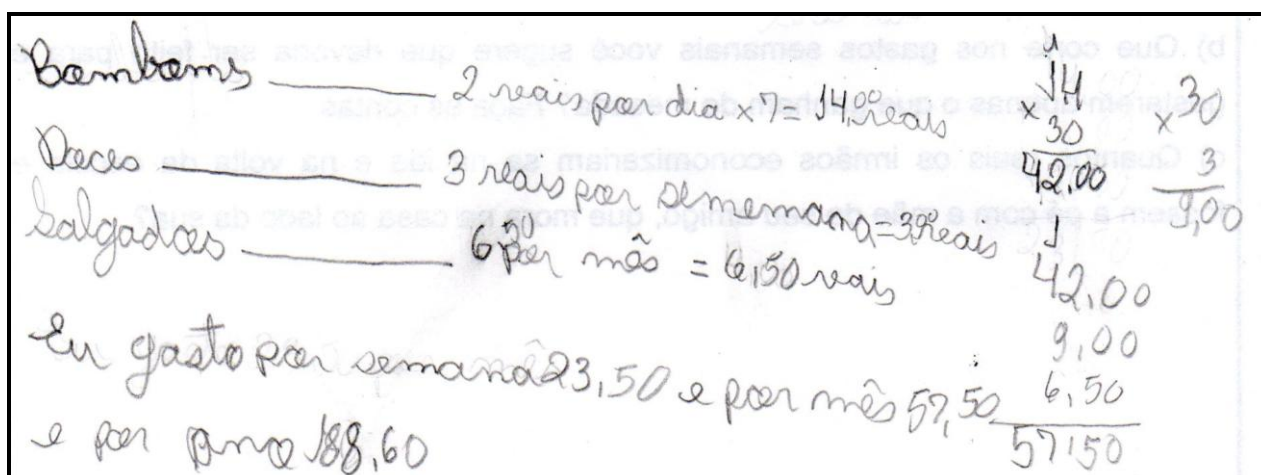 Bomboms 2 reais por dia x 7 = 14,00 reais
Doces 3 reais por sememana = 3,00 reais
Salgados 6,50 por mês = 6,50 reais
Eu gasto por semana 23,50 e por mês 57,50
e por ano 188,60
1
14
x 30
42,00
x 30
3
9,00
1
42,00
9,00
6,50
57,50